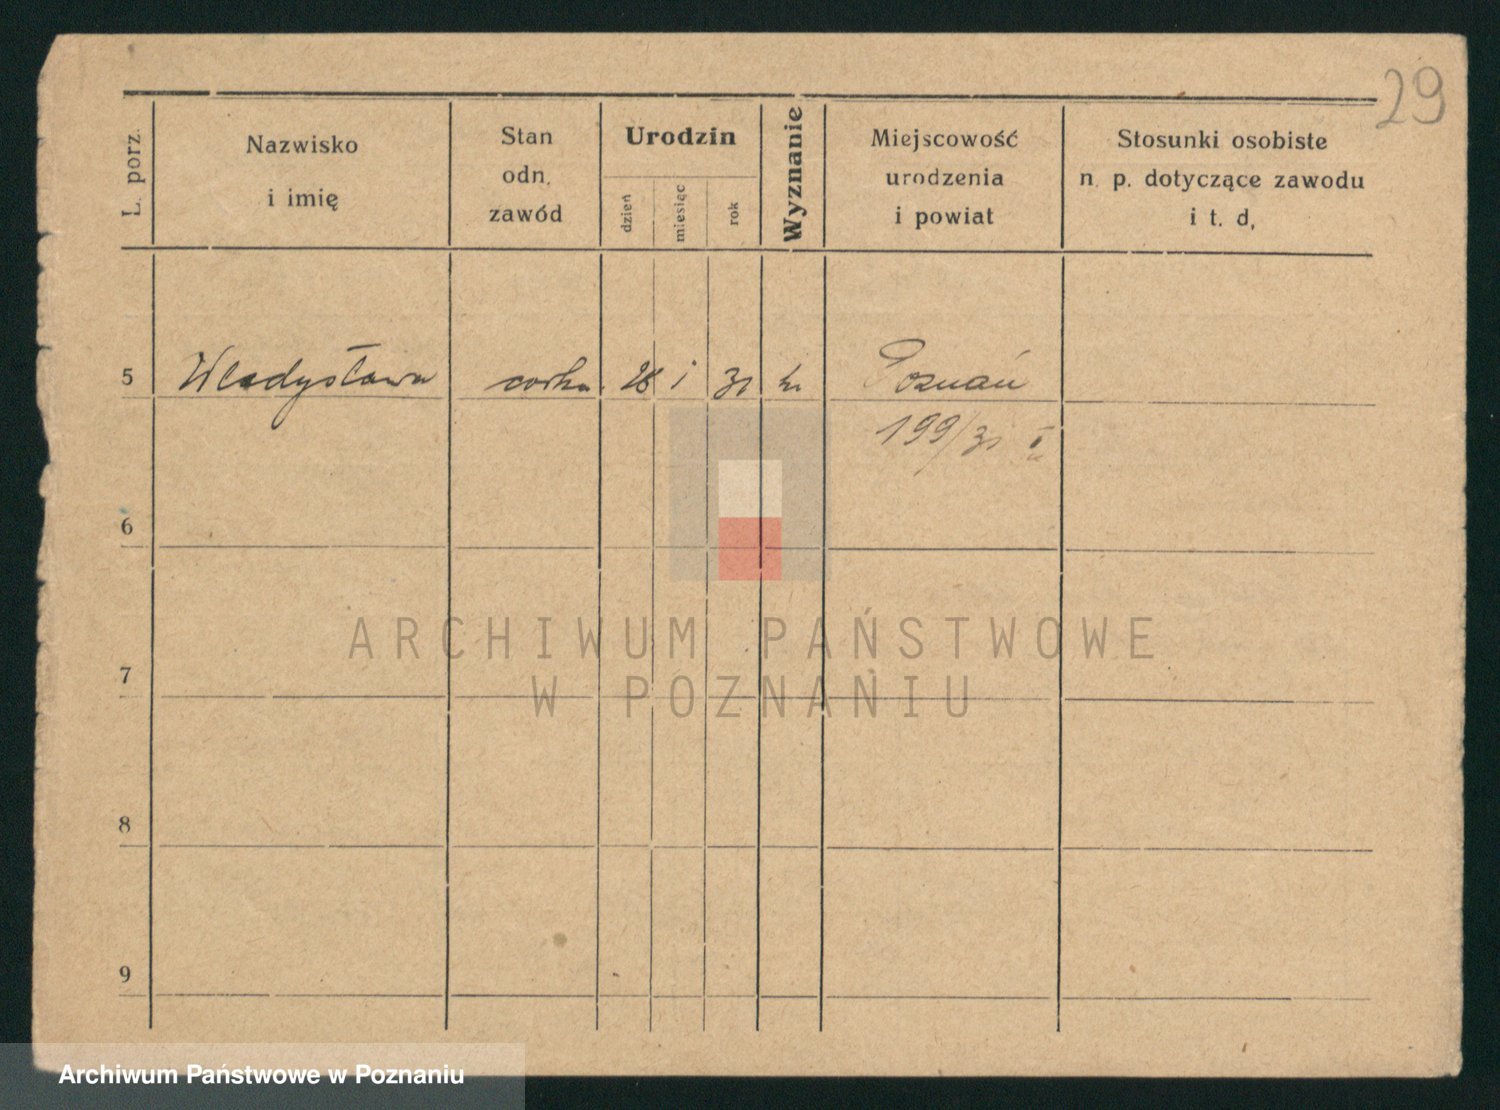 29
L. porz.
Nazwisko
i imię
Stan
odn.
zawód
Urodzin
dzień
miesiąc
rok
Wyznanie
Miejscowość
urodzenia
i powiat
Stosunki osobiste
n. p. dotyczące zawodu
i t. d,
5 Władysława corka 28 i 31 Poznań
199/31 I
6
7
8
9
ARCHIWUM PAŃSTWOWE
W POZNANIU
Archiwum Państwowe w Poznaniu